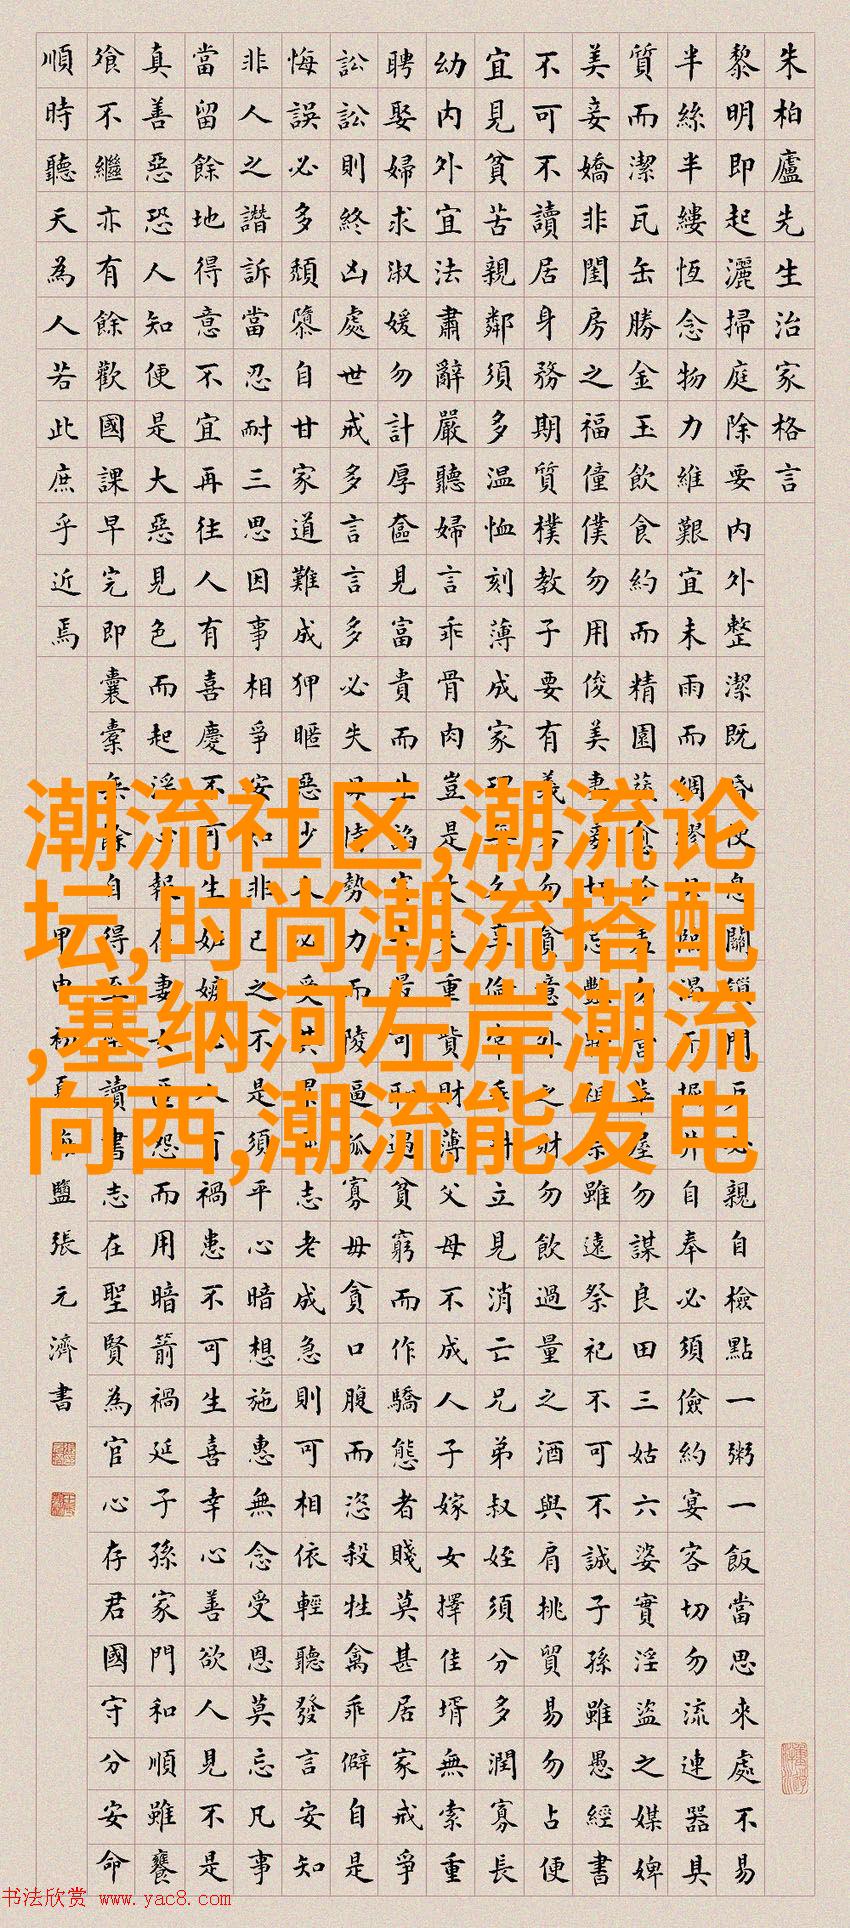 朱柏廬先生治家格言
黎明即起灑掃庭除要內外整潔既昏便息關鎖門戶必親自檢點一粥一飯當思來處不易
半絲半縷恆念物力維艱宜未雨而綢繆毋臨渴而掘井自奉必須儉約宴客切勿流連器具
質而潔瓦缶勝金玉飲食約而精園蔬愈珍羞勿營華屋勿謀良田三姑六婆實淫盜之媒婢
美妾嬌非閨房之福僮僕勿用俊美妻妾切忌艷妝祖宗雖遠祭祀不可不誠子孫雖愚經書
不可不讀居身務期質樸教子要有義方勿貪意外之財勿飲過量之酒與肩挑貿易勿占便
宜見貧苦親鄰須多温恤刻薄成家理無久享倫常乖舛立見消亡兄弟叔姪須分多潤寡長
幼內外宜法肅辭嚴聽婦言乖骨肉豈是丈夫重貲財薄父母不成人子嫁女擇佳壻無索重
聘娶婦求淑媛勿計厚奩見富貴而生諂容者最可恥遇貧窮而作驕態者賤莫甚居家戒爭
訟訟則終凶處世戒多言言多必失毋恃勢力而陵逼孤寡毋貪口腹而恣殺牲禽乖僻自是
悔誤必多頹隳自甘家道難成狎暱惡少久必受其累屈志老成急則可相依輕聽發言安知
非人之譖訴當忍耐三思因事相爭安知非己之不是須平心暗想施惠無念受恩莫忘凡事
當留餘地得意不宜再往人有喜慶不可生妒嫉心人有禍患不可生喜幸心善欲人見不是
真善惡恐人知便是大惡見色而起淫心報在妻女匿怨而用暗箭禍延子孫家門和順雖饔
飧不繼亦有餘歡國課早完即囊橐無餘自得至樂讀書志在聖賢為官心存君國守分安命
順時聽天為人若此庶乎近焉
甲申初夏海鹽張元濟書
潮流社区,潮流论
坛,时尚潮流搭配
,塞纳河左岸潮流
向西,潮流能发电
书法欣赏 www.yac8.com